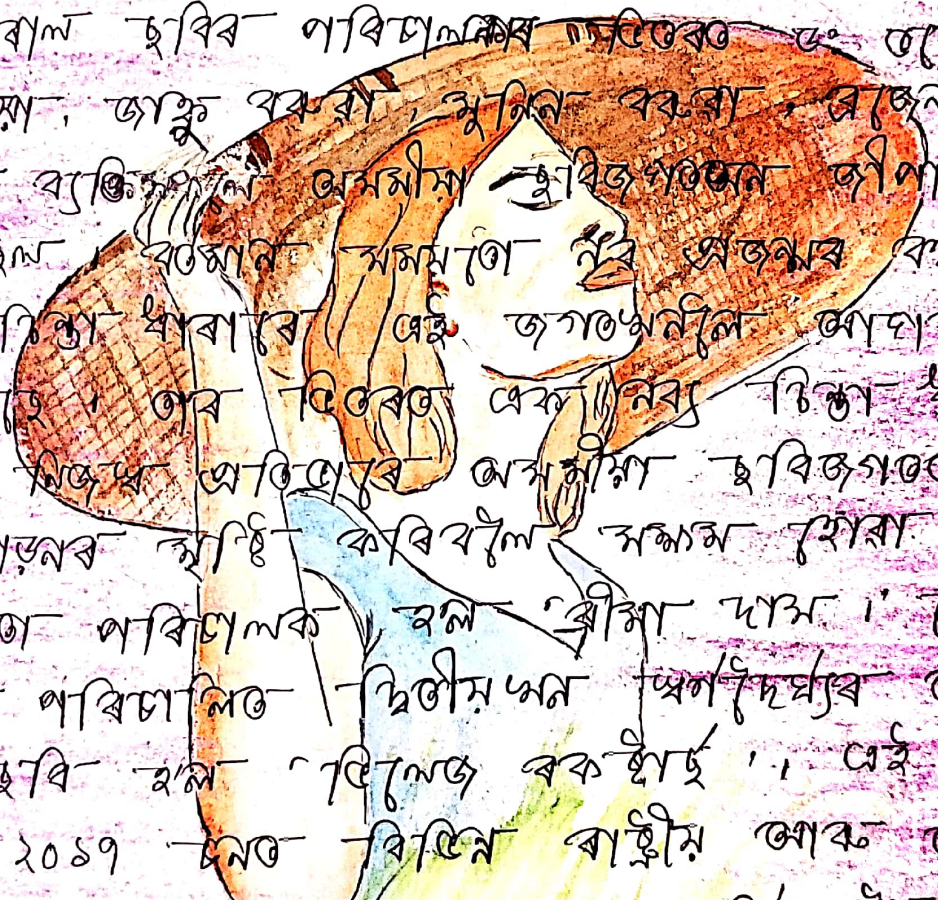 ছবিৰ পৰিচালকৰ ভিতৰত ড°
জাহ্নু বৰুৱা, মুনিন বৰুৱা,
ব্যক্তিসকলে অসমীয়া ছবিজগতখন
বৰ্তমান সময়তো নৱ প্ৰজন্মৰ
চিন্তা ধাৰাৰে এই জগতখনলৈ
। তাৰ ভিতৰত এক নব্য চিন্তা
নিজস্ব প্ৰতিভাৰে অসমীয়া ছবিজগতত
সৃষ্টি কৰিবলৈ সক্ষম হোৱা
পৰিচালক হল 'ৰীমা দাস।'
পৰিচালিত দ্বিতীয়খন স্বৰ্গদৈৰ্ঘ্যৰ
ছবি হ'ল 'ভিলেজ ৰকষ্টাৰ্ছ'। এই
২০১৭ চনত বিভিন্ন ৰাষ্ট্ৰীয় আৰু